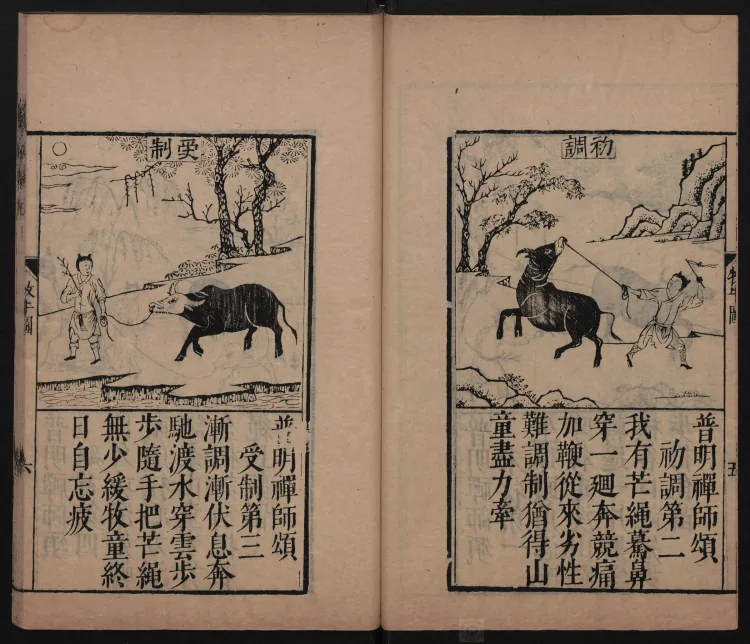 初調
普明禪師頌
初調第二
我有芒繩驀鼻
穿一廻奔競痛
加鞭從來劣性
難調制猶得山
童盡力牽
五
受制
普明禪師頌
受制第三
漸調漸伏息奔
馳渡水穿雲步
步隨手把芒繩
無少緩牧童終
日自忘疲
牧牛圖
六